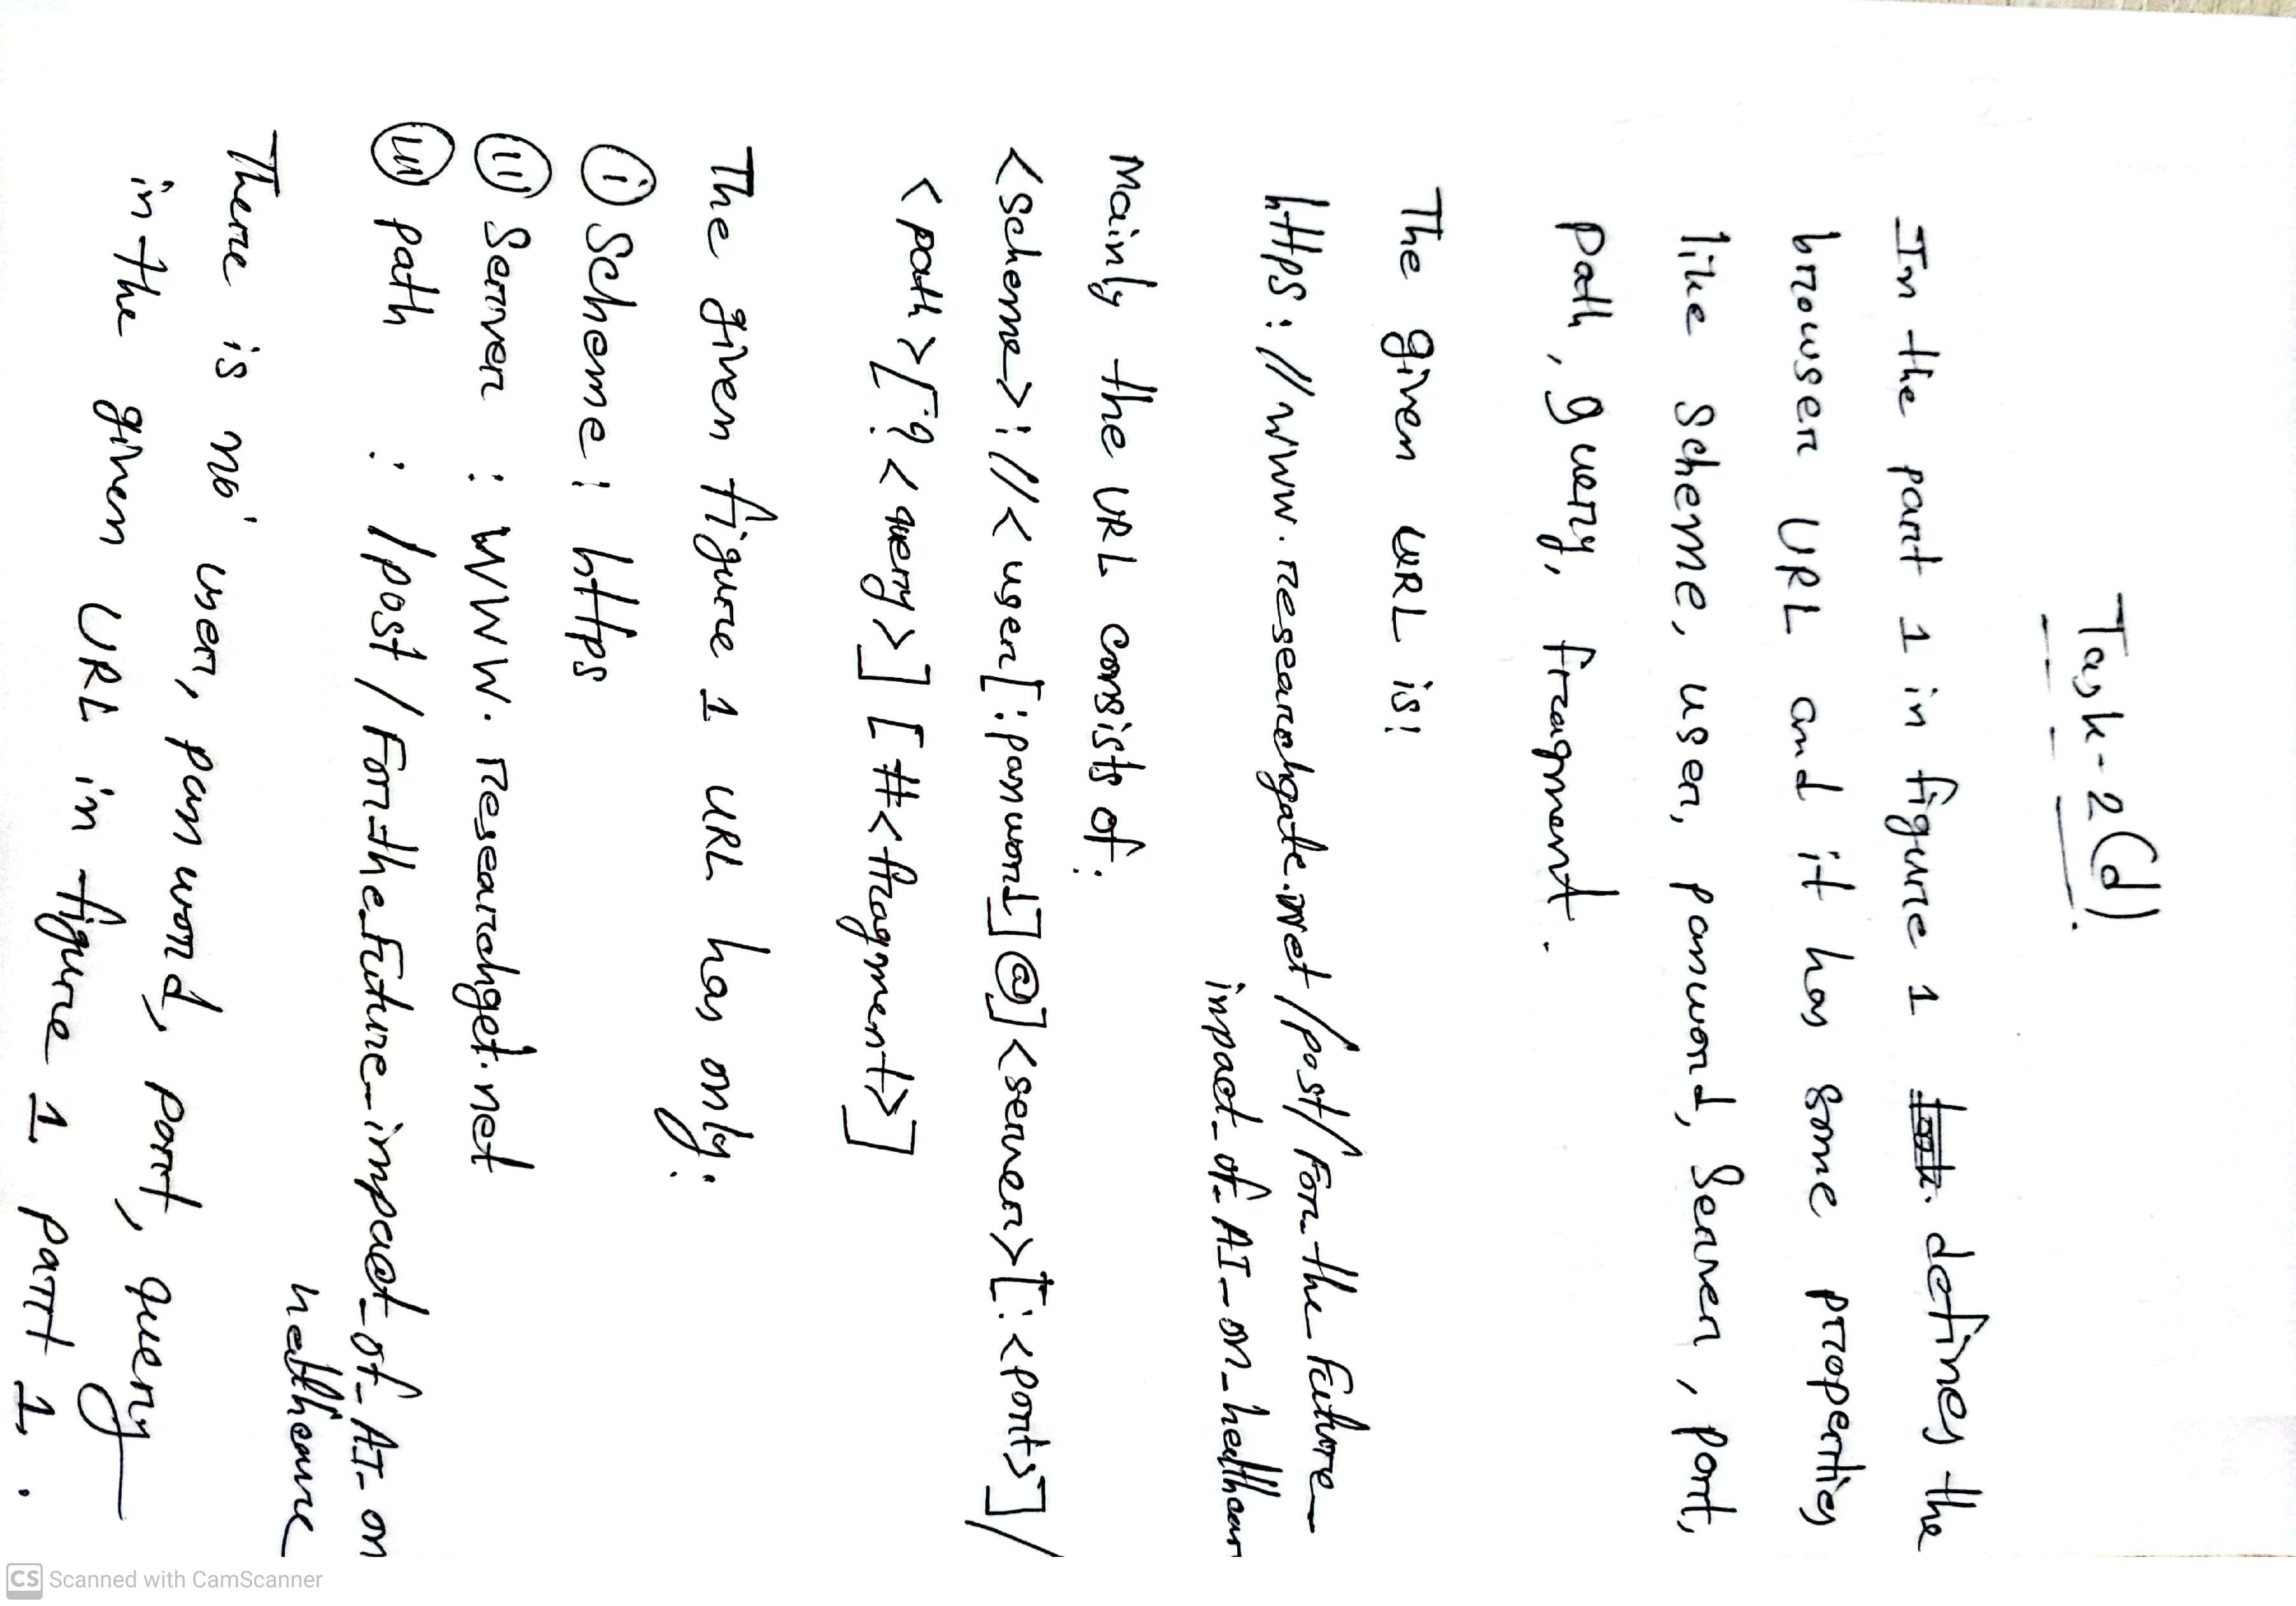 Task-2(d)
In the part 1 in figure 1 defines the
browser URL and it has some properties
like scheme, user, password, server, port,
path, query, fragment.
The given URL is:
https://www.researchgate.net/post/For_the_Future_
impact_of_AI_on_healthcar
Mainly the URL consists of:
<scheme>://<user[:password]@]<server>[:<port>]/
<path>[?<query>][#<fragment>]
The given figure 1 URL has only:
(i) Scheme: https
(ii) Server : www.researchget.net
(iii) path : /post/For_the_Future_impact_of_AI_on
helthcare
There is no user, password, port, query
in the given URL in figure 1 part 1.
CS Scanned with CamScanner